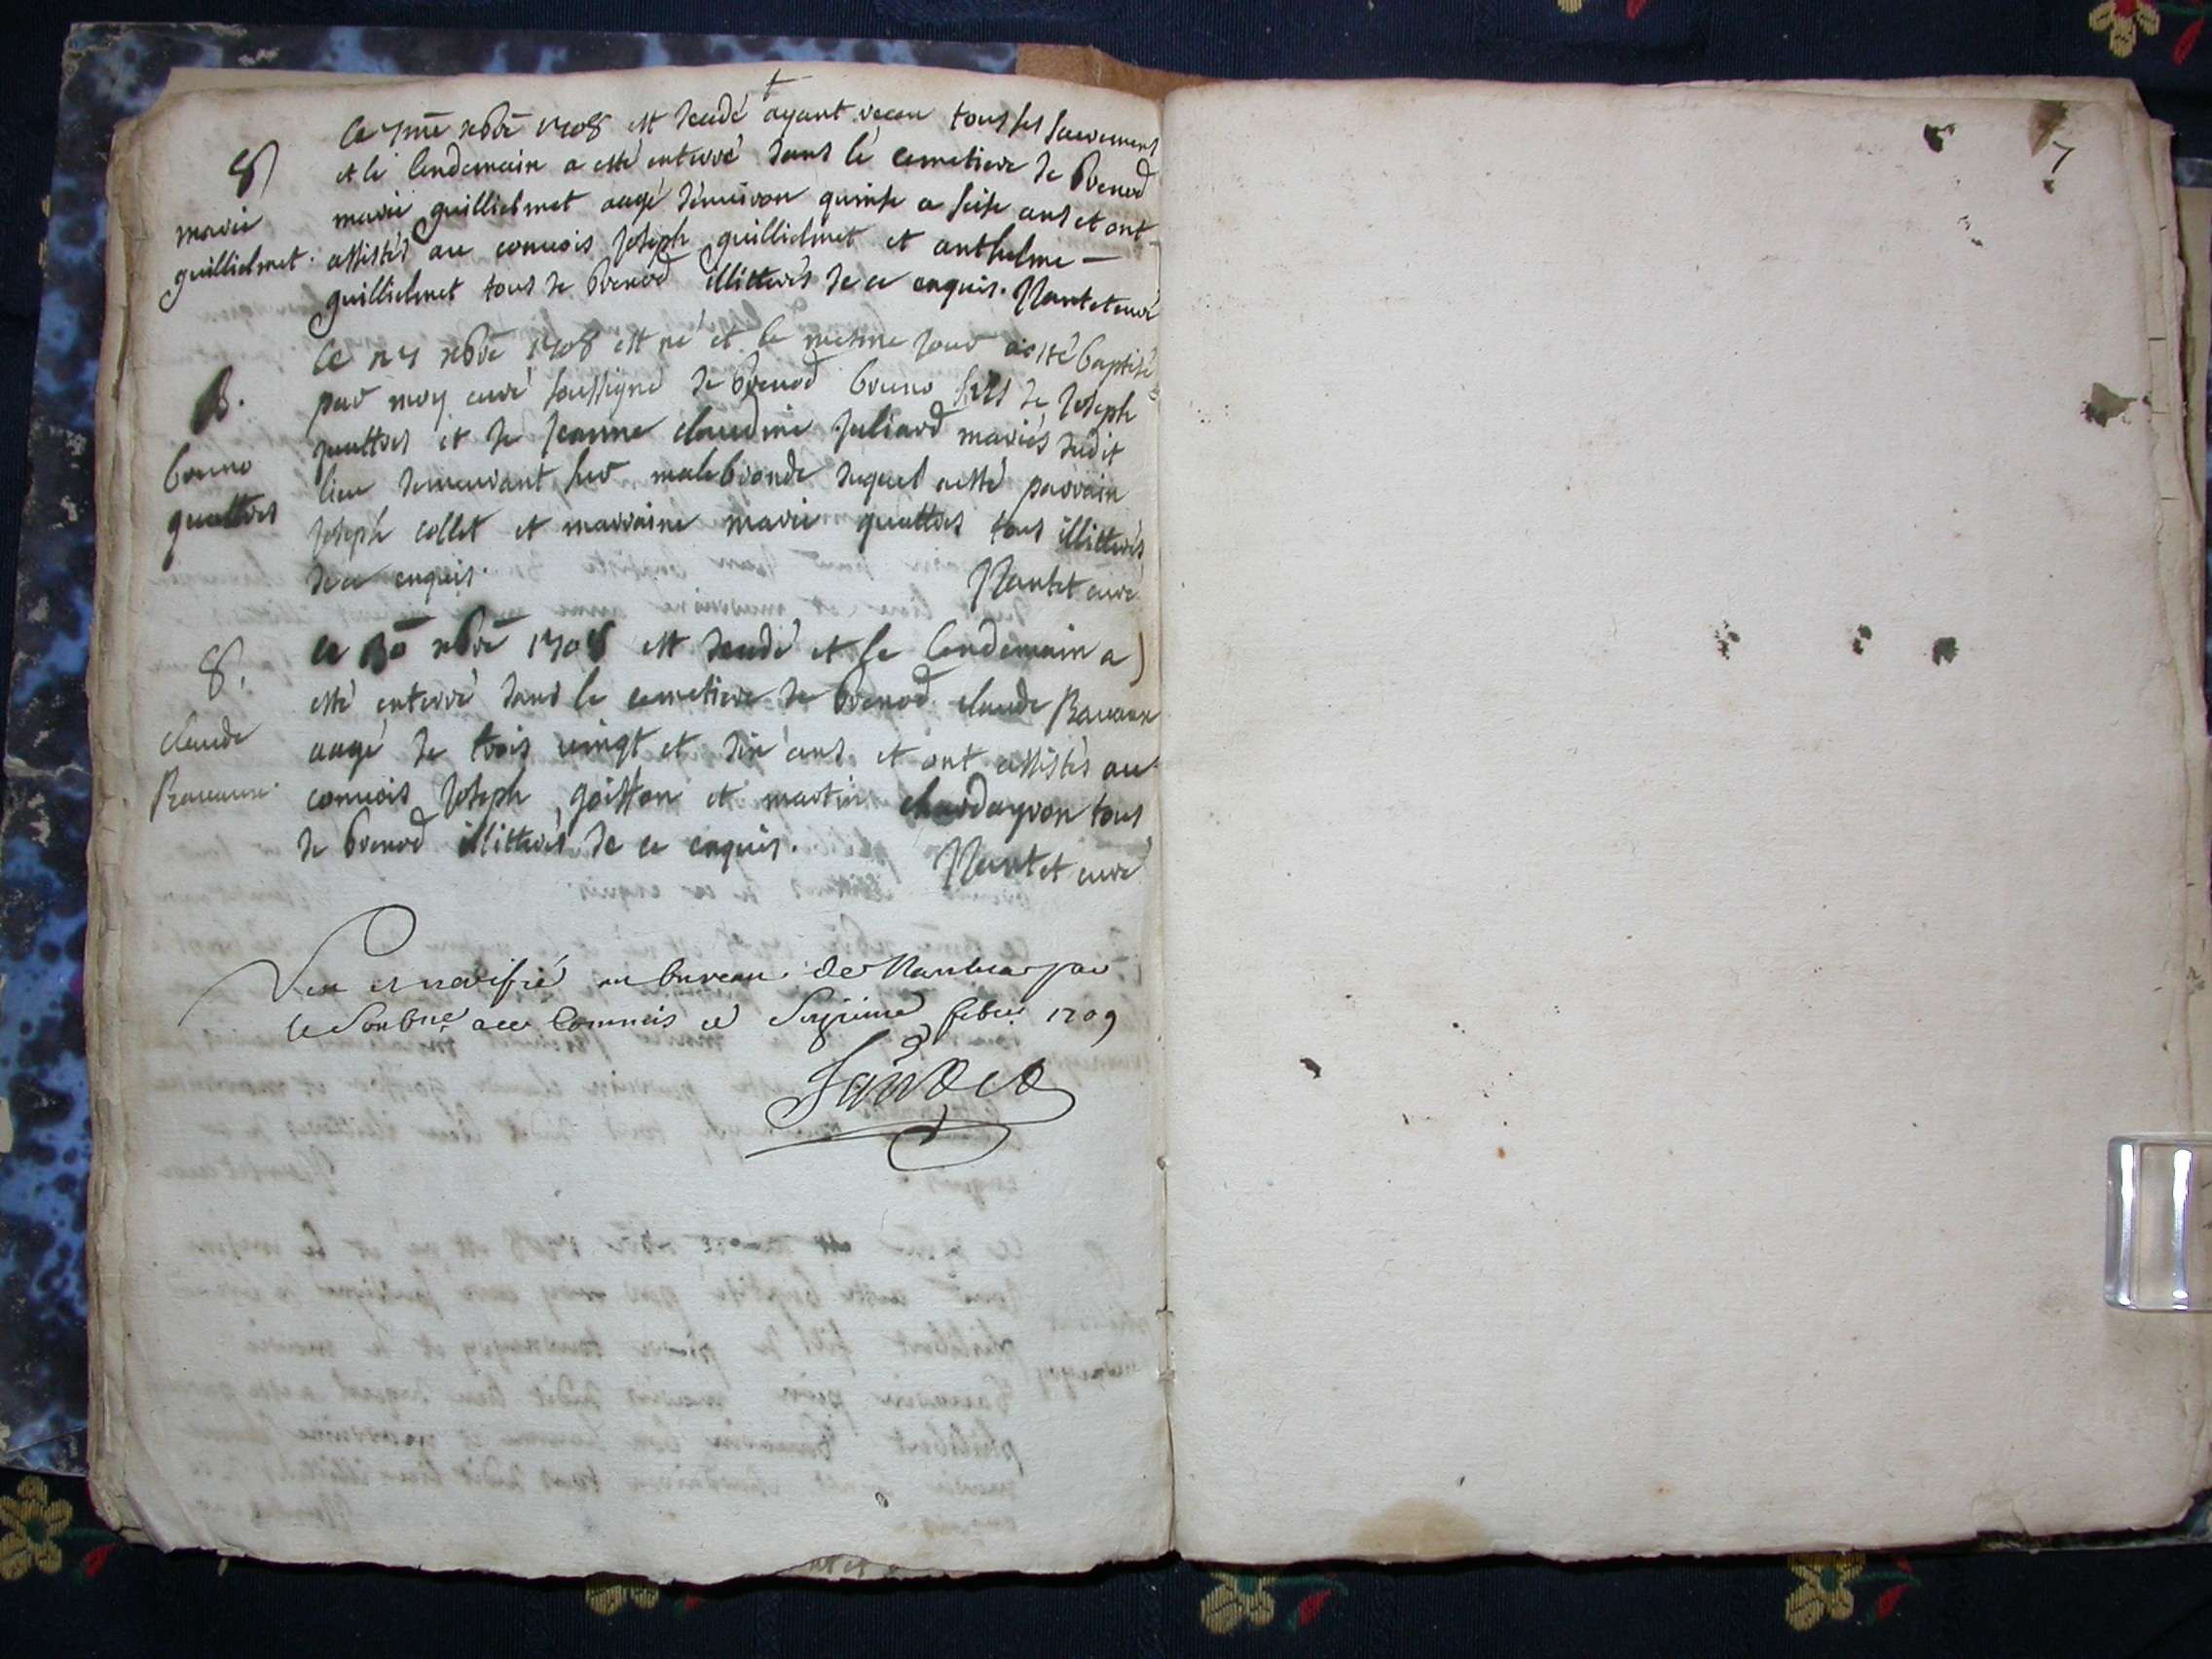 †
Ce 7me xbre 1708 est decedé ayant receu tous ses sacremens
et le lendemain a esté enterré dans le cemetiere de Brenod
marie guillielmet aagé d'enuiron quinse a seise ans et ont
assistés au conuois Joseph guillielmet et anthelme –
guillielmet tous de Brenod illitterés de ce enquis. Nantet curé
S
marie
guillielmet.
Ce xbre 1708 est né et le mesme jour a esté baptisé
par moy curé soussigné de brenod bruno fils de Joseph
quattres et de Jeanne claudine Juliard mariés dudit
lieu demeurant sur malebronde duquel a esté parrain
Joseph collet et marraine marie quattres tous illitterés
de ce enquis. Nantet curé
B.
bruno
quattres
Ce 30 xbre 1708 est decedé et le lendemain a
esté enterré dans le cemetiere de Brenod claude
aagé de trois vingt et dix ans et ont assistés au
conuois Joseph goiffon et martin tous
de brenod illitterés de ce enquis.
Nantet curé
S.
claude
Veu et verifié au bureau de Nantua par
le commis ce febr 1709
7